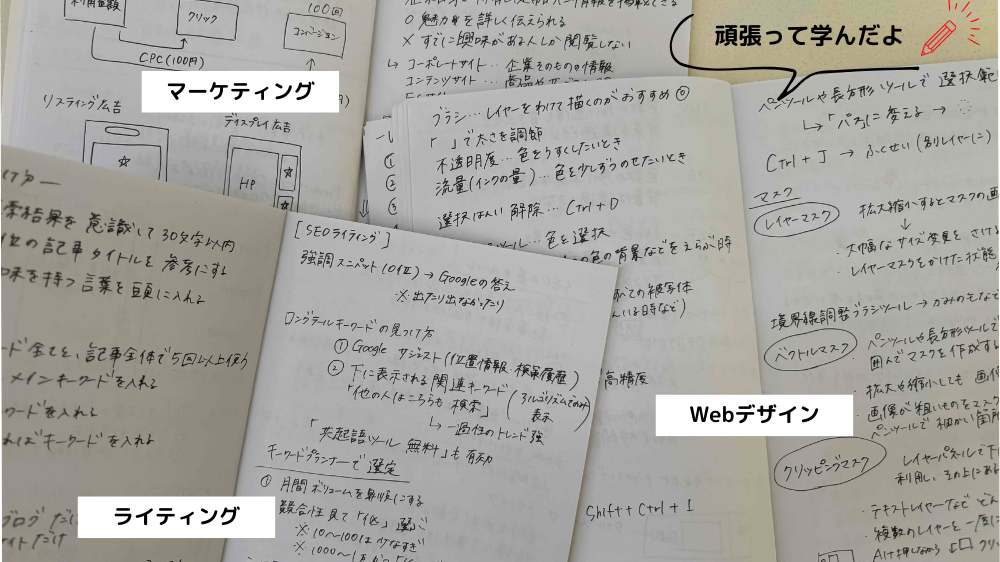 頑張って学んだよ
マーケティング
クリック
100回
コンバージョン
CPC(100円)
リスティング広告
ディスプレイ広告
HP
○ 魅力を詳しく伝えられる
× すでに興味がある人しか閲覧しない
↳ コーポレートサイト…企業そのものの情報
コンテンツサイト…
ブラシ…レイヤーをわけて描くのがおすすめ◎
「 」で太さを調節
不透明度…色をうすくしたいとき
流量(インクの量)…色を少しずつのせたいとき
選択はんい解除…Ctrl+D
ツール…色を選択
の色の背景などをえらぶ時
すべての被写体
高精度
Shift+Ctrl+I
Webデザイン
ペンツールや長方形ツールで選択範
↳「パス」に変える →
Ctrl+J → ふくせい(別レイヤーに)
マスク
レイヤーマスク
拡大縮小するとマスクの画
↓
・大幅なサイズ変更をさける
・レイヤーマスクをかけた状態
境界線調整ブラシツール → かみの毛など
ベクトルマスク
ペンツールや長方形ツールで
囲んでマスクを作成する
・拡大や縮小しても画像
・画像が粗いものをマスク
ペンツールで細かい箇所
クリッピングマスク
レイヤーパネルで下
利用し、その上にある
・テキストレイヤーなど
・複数のレイヤーを一度に
Alt押しながら
索結果を意識して30文字以内
位の記事タイトルを参考にする
味を持つ言葉を頭に入れる
ード全てを、記事全体で5回以上使う
メインキーワードを入れる
ワードを入れる
ればキーワードを入れる
ブログだけ
サイトだけ
ライティング
[SEOライティング]
強調スニペット(0位) → Googleの答え
※出たり出なかったり
ロングテールキーワードの見つけ方
① Google サジェスト(位置情報・検索履歴)
② 下に表示される関連キーワード
「他の人はこちらも検索」
(アルゴリズムでのみ表示
↳ 一過性のトレンド強
「共起語ツール 無料」も有効
キーワードプランナーで選定
① 月間ボリュームを
競合性見て「低」選ぶ
※10〜100は少なすぎ